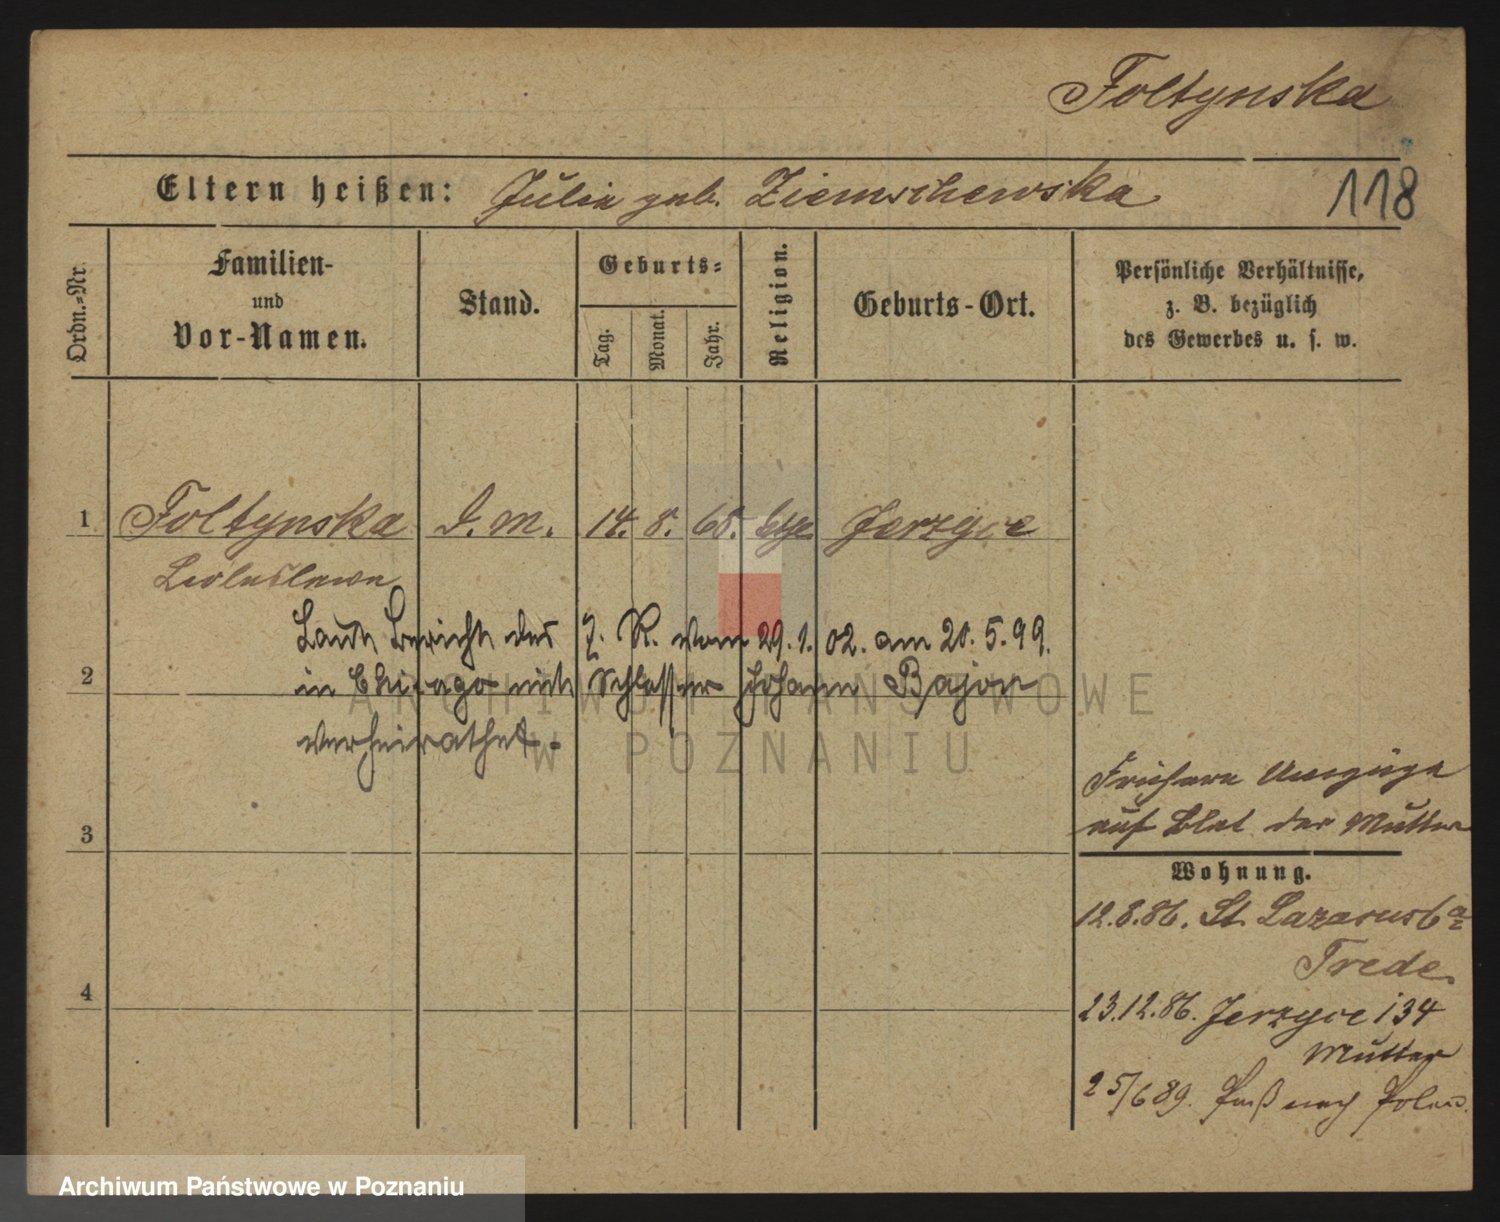 Foltynska
Eltern heißen: Julia geb. Ziemschewska
118
Ordn.-Nr.
Familien-
und
Vor-Namen.
Stand.
Geburts-
Tag.
Monat.
Jahr.
Religion.
Geburts-Ort.
Persönliche Verhältnisse,
z. B. bezüglich
des Gewerbes u. s. w.
1 Foltynska D. M. 14. 8. 68. Jerzyce
Laut Bericht des P. R. vom 29.1.02. am 20.5.99.
2
in Chicago mit Schlosser Johann Bajor
verheirathet.
ARCHIWUM PAŃSTWOWE
W POZNANIU
Frühere Umzüge
auf Blat der Mutter
3
Wohnung.
12.8.86. St. Lazarus 6
Trede
4
23.12.86. Jerzyce 134
Mutter
25/6 89. Paß nach Polen.
Archiwum Państwowe w Poznaniu